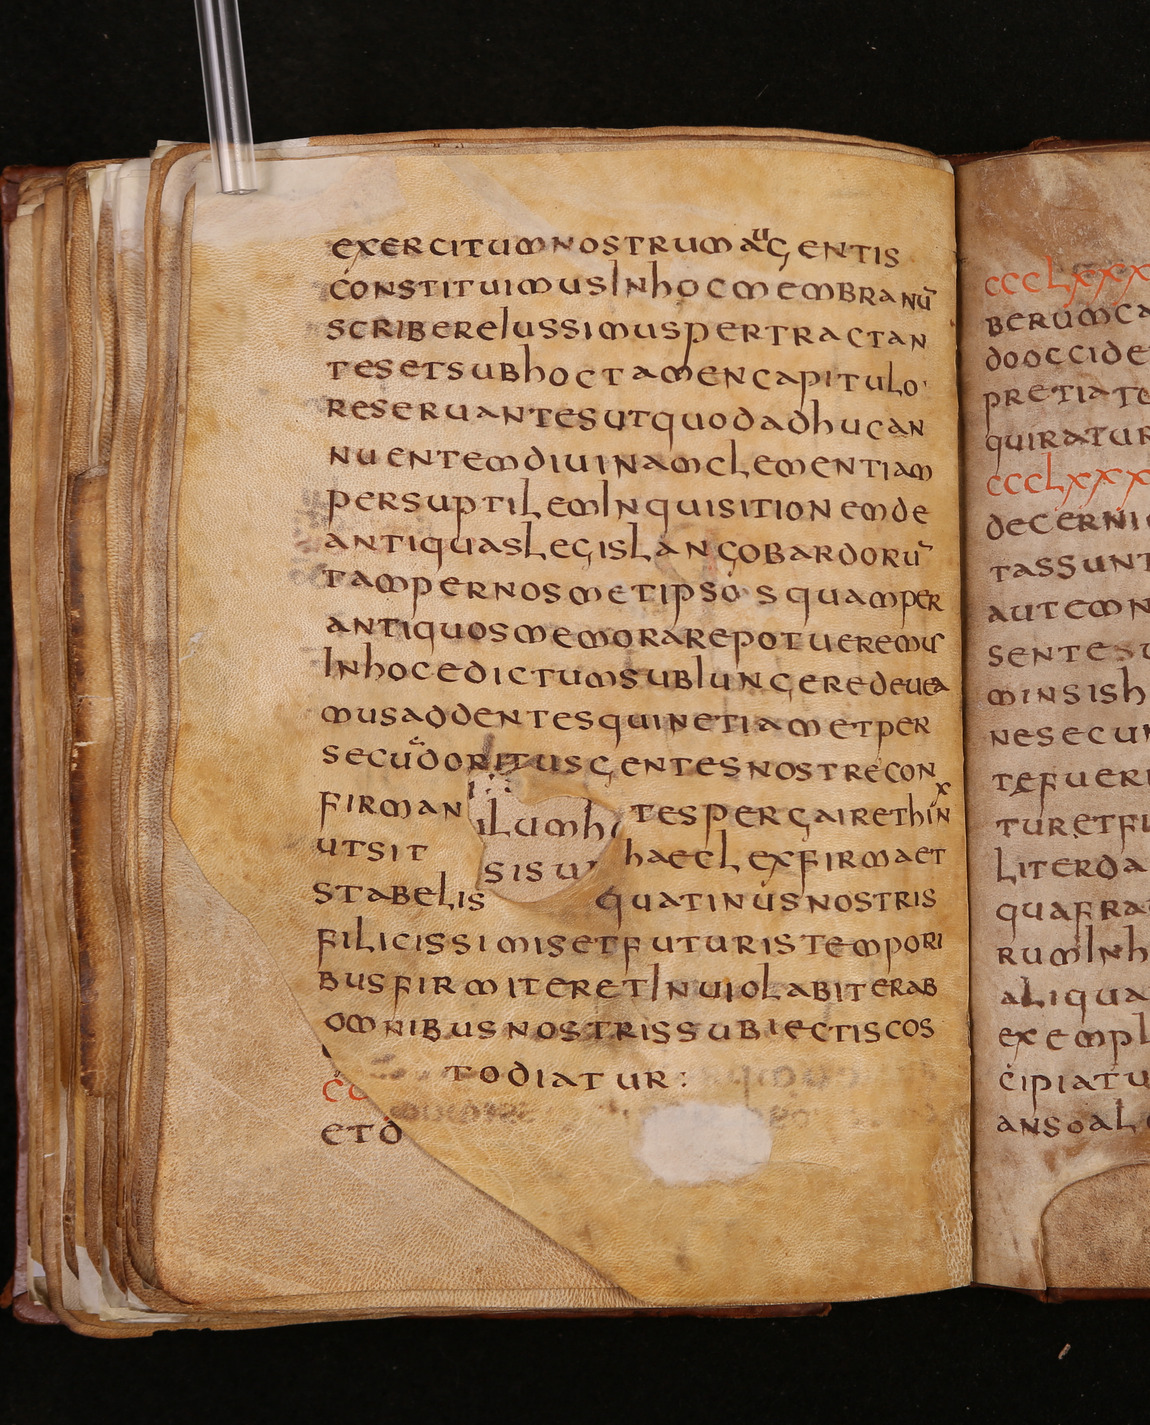 exercitumnostrum aug entis
constituimusInhocmembranū
scriberelussimuspertractan
tesetsubhoctamencapitulo·
reseruantesutquodadhucan
nuentemdiuinamclementiam
persuptilemInquisitionemde
antiquaslegislangobardorū
tampernosmetipsosquamper
antiquosmemorarepotueremus
Inhocedictumsublungeredeuea
musaddentesquinetiametper
secūdoritusgentesnostrecon
firman tespergairethinx
utsit haeclexfirmaet
stabelis quatinusnostris
filicissimisetfuturistempori
busfirmiteretInuiolabiterab
omnibusnostrissubiectiscos
todiatur:
etd
ilumh
sisu
ccclxxx
berumca
dooccide
pretiate
quiratur
ccclxxx
decerni
tassunt
autemn
sentes
minsish
nesecun
tefueri
turetfi
literda
quafra
rumInh
aliqua
exempl
cipiatu
ansoal